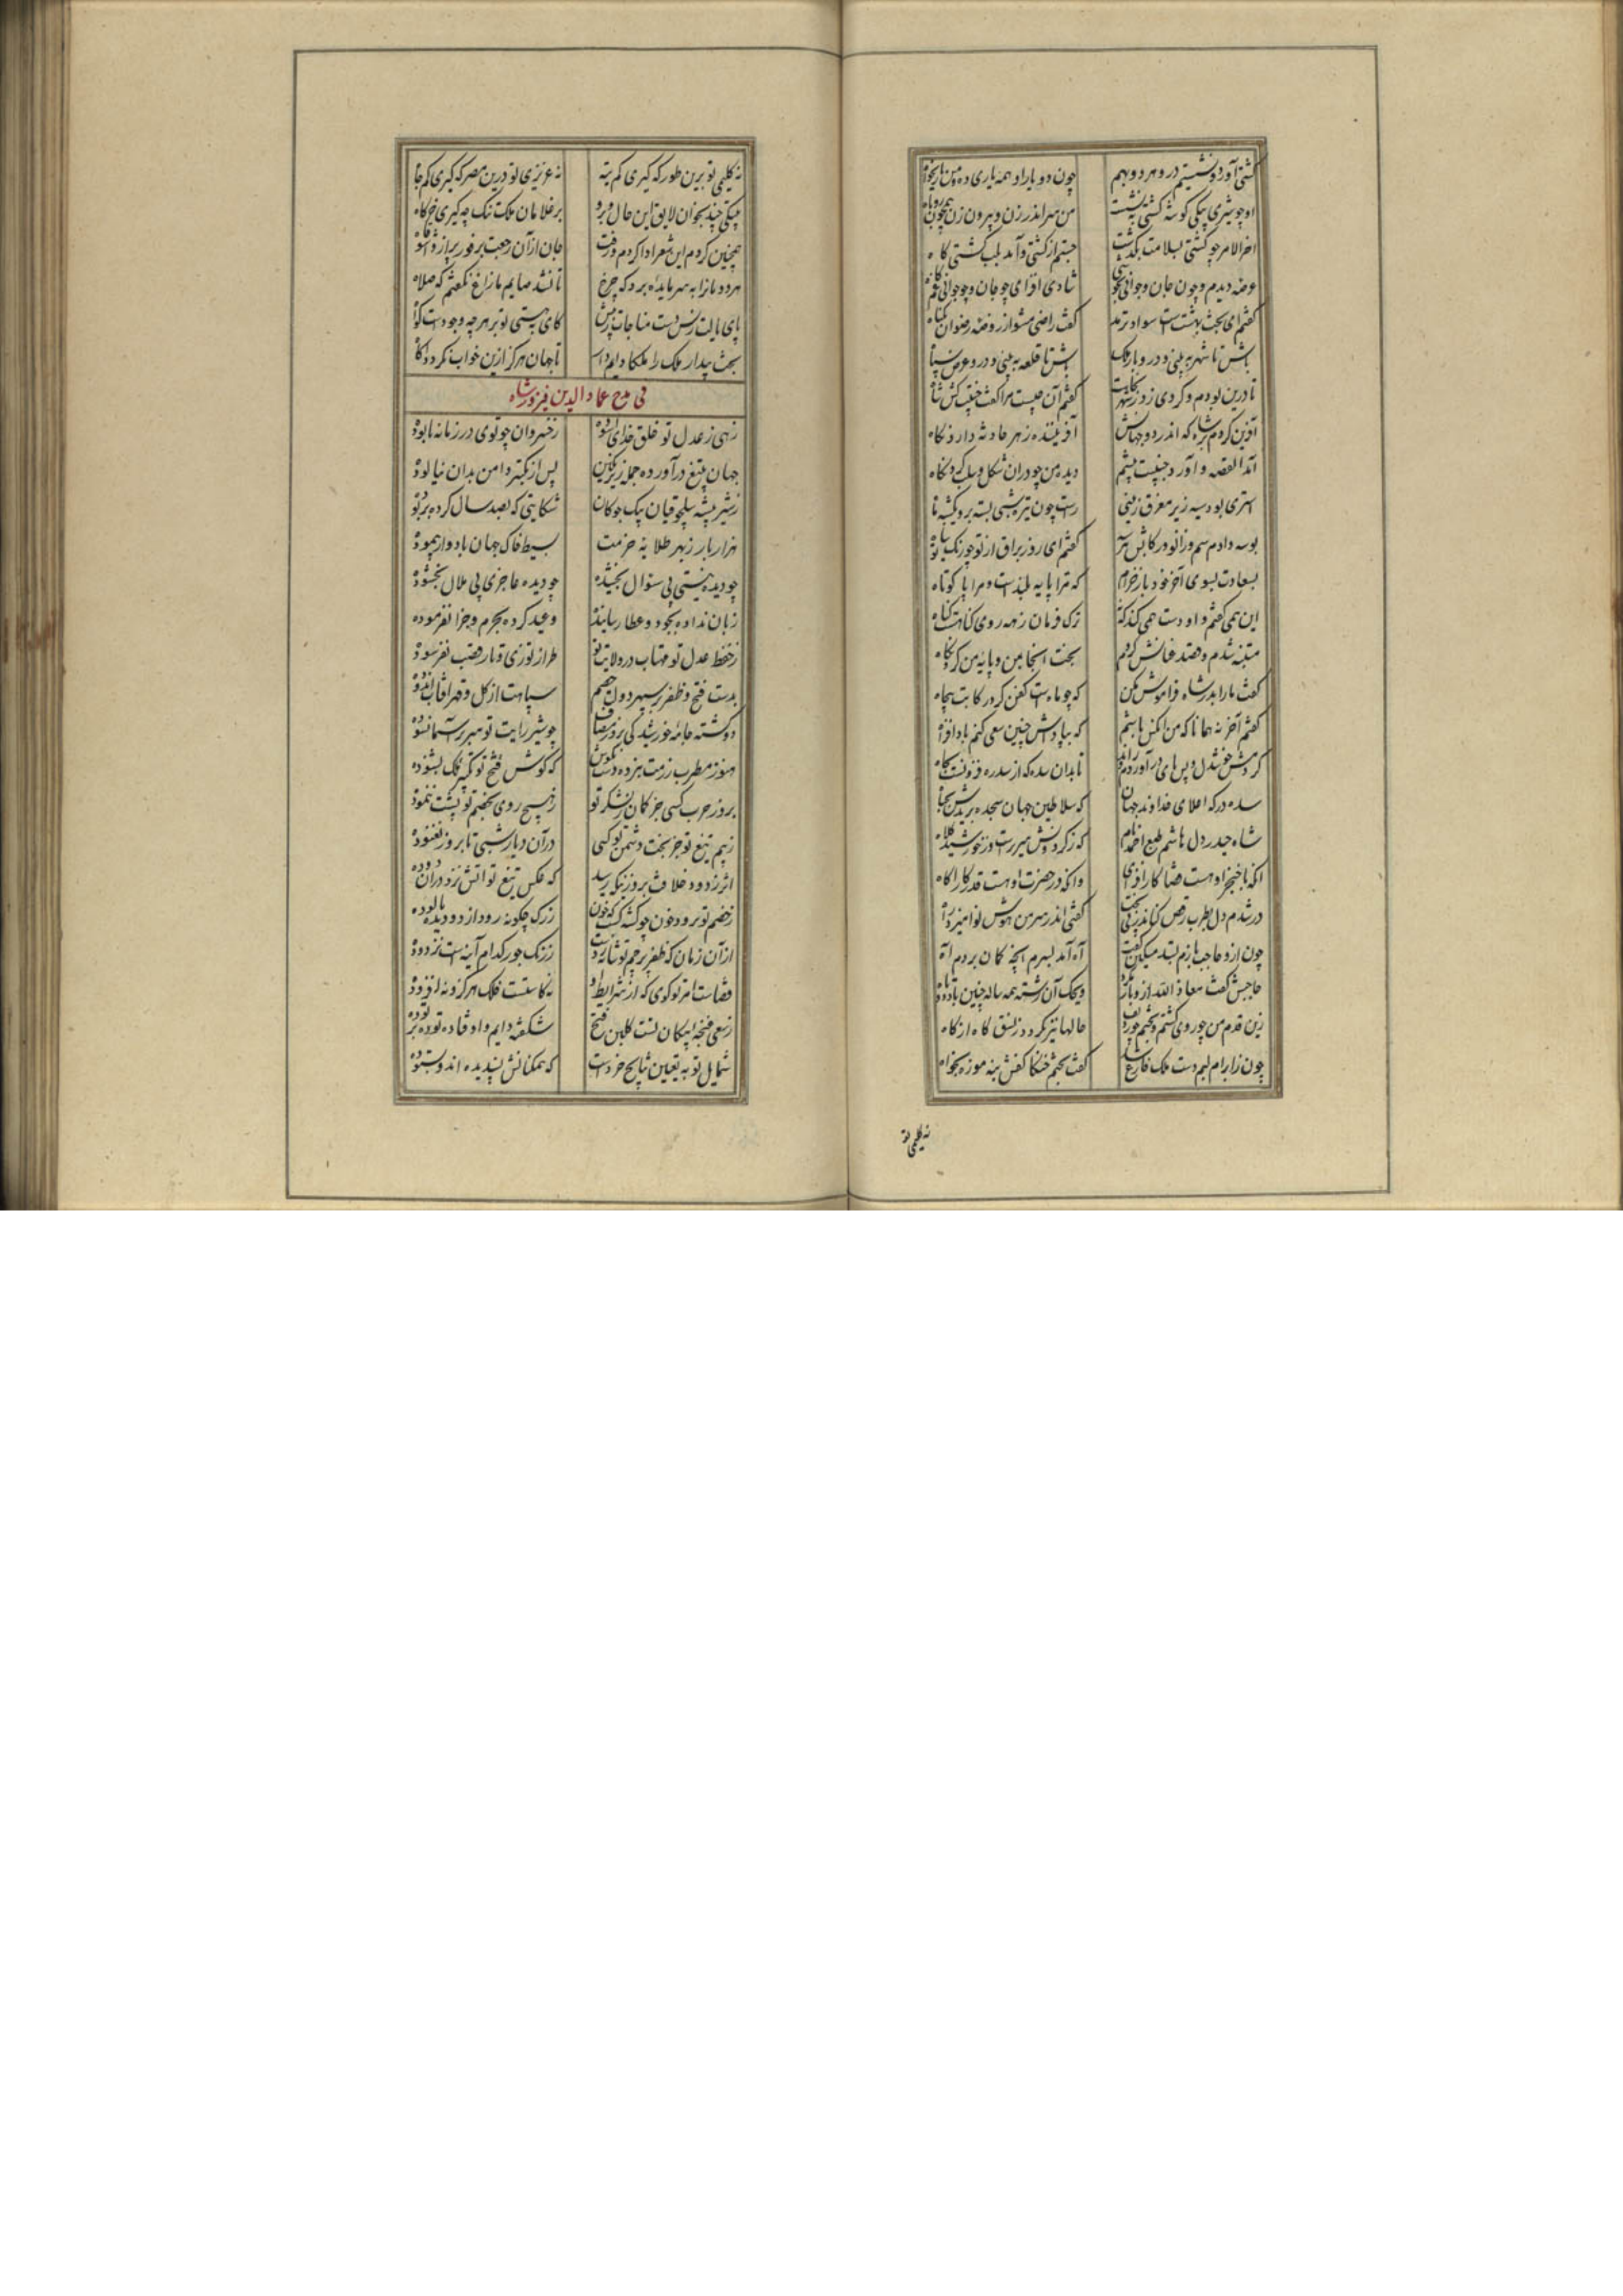 کشتی آورد و نشستیم در و هر دو بهم
چون دو یار او همه یاری ده و من یاریخواه
او چو شیری بیکی گوشه کشتی بنشست
من سر اندر زن و بیرون زن همچون روباه
اخر الامر چو کشتی بسلامت بگذشت
جستم از کشتی و آمد بلب کشتی گاه
عرصه دیدم چون جان و جوانی بخوشی
شادی افزای چو جان و چو جوانی غم کاه
گفتم ای بخت بهشتست سواد ترمد
گفت راضی مشو از روضه رضوان بگیاه
باش تا شهر ببینی و در و بار ملک
باش تا قلعه ببینی و در و عرض سپاه
تا درین بودم و گردی ز در شهر بخاست
گفتم آن چیست مرا گفت جنیبت کش شاه
آفرین کردم بر شاه که اندر دو جهانش
آفریننده ز هر حادثه دارد نگاه
آمد القصه و آورد جنیبت پیشم
دیده من چو در آن شکل و شبه کرد نگاه
استری بود سیه زیر مغرق زینی
راست چون تیره شبی بسته برو یکشبه ماه
بوسه دادم سم و زانو و رکابش هر سه
گفتم ای روز براق از تو چو رنگ تو سیاه
بسعادت بسوی آخر خود باز خرام
که ترا پایه بلندست و مرا پا کوتاه
این همی گفتم و او دست همی کند که نه
ترک فرمان ز همه روی گناهست گناه
متنبه شدم و قصد عنانش کردم
بخت اینجا بمن و پایه من کرد نگاه
گفت ما را بدر شاه فراموش مکن
که چو ماهست کفن کرد رکابت بیجاه
گفتم آخر نه همانا که من آنکس باشم
که بپاداش چنین سعی کنم بادافراه
کردمش خوشدل و پس پای در آوردم و راند
تا بدان سده که از سدره فزونست بجاه
سده درگه اعلای خداوند جهان
که سلاطین جهان سجده برندش بجباه
شاه حیدر دل هاشم طبع احمد نام
که ز گردونش سریرست وز خورشید کلاه
آنکه با خنجر او هست قضا کار افزای
وانکه در حضرت او هست قدر کارآگاه
در شدم دل بطرب رقص کنان در بر بخت
گفتی اندر سر من هوش نوامیزد راه
چون از و حاجب بازم بشد میگفت
آه آمد بسرم آنچه گمان بردم آه
حاجبش گفت معاذ الله ازو باز نگرد
ویحک آن رشته همه ساله چنین باد دوتاه
زین قدم من چو روی گشتم و بختم چو ردیف
حالها نیز نگردد ز نسق گاه از گاه
چون زابرام لبم دست ملک فارغ شد
گفت بختم خنکا کفش بنه موزه بخواه
نه کلیمی تو
نه کلیمی تو برین طور که گیری کم تیه
نه عزیزی تو درین مصر که گیری کم چاه
بیتکی چند بخوان لایق این حال و برو
بر غلامان ملک تنگ چه گیری خرگاه
همچنین کردم این شعر ادا کردم و رفت
جان از آن رجعت بر فور پر از وا اسفاه
هر دو بازآ به سر مایده برد که چرخ
تا نشد صایم بازاغ نگفتم که صلاه
پای بالت زنس دست مناجات بریش
کای بهستی تو بر هر چه وجودست گواه
بخت بیدار ملک را ملکا دایم دار
تا جهان هرگز ازین خواب نگردد آگاه
فی مدح عماد الدین فیروز شاه
زهی ز عدل تو خلق خدای آسوده
ز خسروان چو توی در زمانه نابوده
جهان بتیغ درآورده جمله زیر نگین
پس از تکبر دامن بدان نیالوده
ز شیر بیشه سلجوقیان بیک جوکان
شکایتی که بصد سال کرده بربوده
هزار بار ز بهر طلایه حزمت
بسیط خاک جهان بادوار پیموده
چو دیده نیستی بی سئوال بخشیده
چو دیده عاجزی بی ملال بخشوده
زبان نداده بجود و عطا رسانیده
وعید کرده بجرم و جزا نفرموده
ز حفظ عدل تو مهتاب در ولایت تو
طراز توزی و تار قصب نفرسوده
بدست فتح و ظفر بر سپهر دولت خصم
سپاهت از گل و قهر آفتاب اندوده
دو گشته جامه خورشید گی بروز مصاف
چو شیر رایت تو سر بر آسمان سوده
هنوز مطرب رزمت نزده دست بکوس
که گوش فتح تو تکبیر فلک بشنوده
بروز حرب کسی جز کمان ز لشکر تو
ز هیچ روی بخصم تو پشت ننموده
ز بیم تیغ تو جز بخت دشمن تو کسی
در آن دیار شبی تا بروز نغنوده
اثر ز دود خلافت بروز نیک رسید
که عکس تیغ تو آتش نزد در آن دوده
ز خصم تو برود خون چو کشته گشت که خون
ز رگ چگونه رود از دو دیده پالوده
از آن زمان که ظفر پرچم تو شانه زدست
ز زنگ جور کدام آینه ست نزدوده
قضاست امر تو گوی که از شرایط او
نه کاستست فلک هرگز و نه افزوده
ز سعی غنچه پیکان تست گلبن فتح
شکفته دایم و او فتاده توده بر توده
شمایل تو بتعیین نتایج خردست
که همگنانش پسندیده اند و بستوده